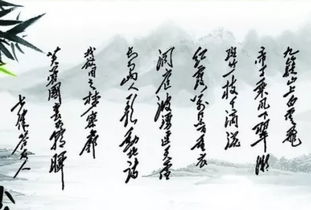 九嶷山上白雲飛
帝子乘風下翠微
斑竹一枝千滴淚
紅霞萬朵百重衣
洞庭波涌連天雪
長島人歌動地詩
我欲因之夢寥廓
芙蓉國里盡朝暉
七律答友人